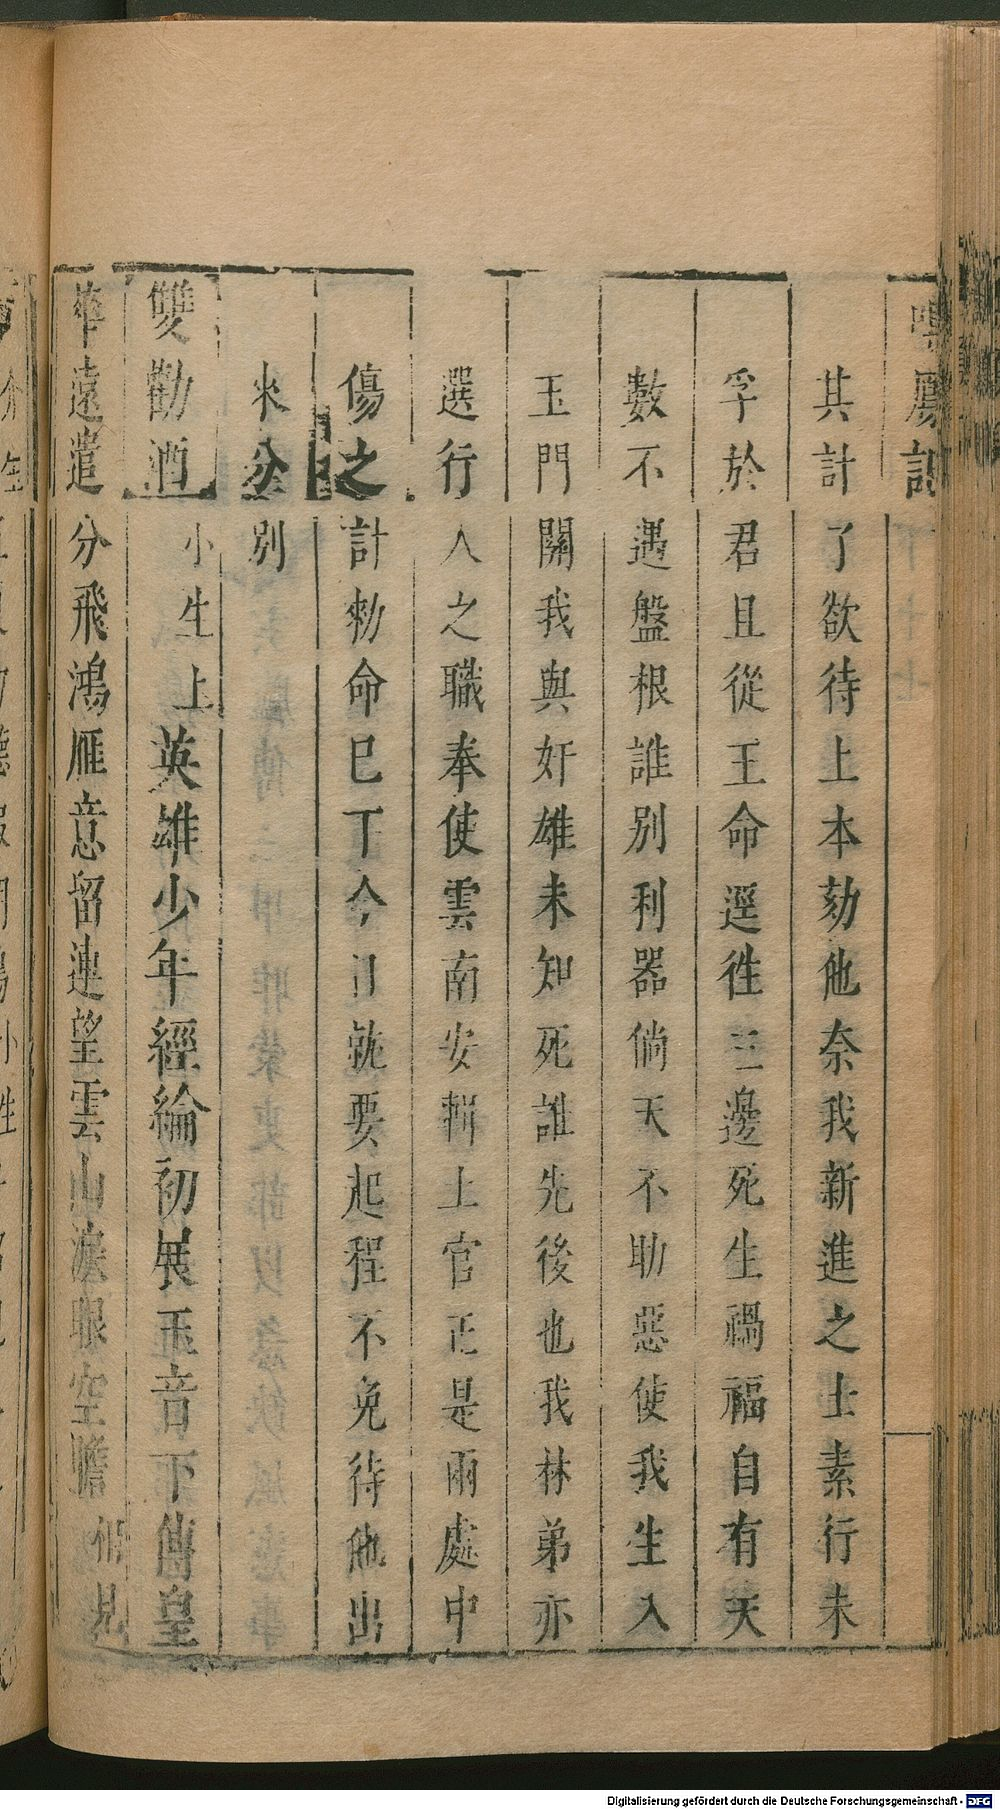 鷹記
其計了欲待上本劾他奈我新進之士素行未
孚於君且從王命逕徃三邊死生禍福自有天
數不遇盤根誰別利器倘天不助惡使我生入
玉門關我與奸雄未知死誰先後也我林弟亦
選行人之職奉使雲南安輯土官正是兩處中
傷之計勑命已丁今日就要起程不免待他出
來分別
雙勸酒 小生上 英雄少年經綸初展玉音下傳皇
華遠遣分飛鴻雁意留連望雲山淚眼空瞻 相見
Digitalisierung gefördert durch die Deutsche Forschungsgemeinschaft - DFG